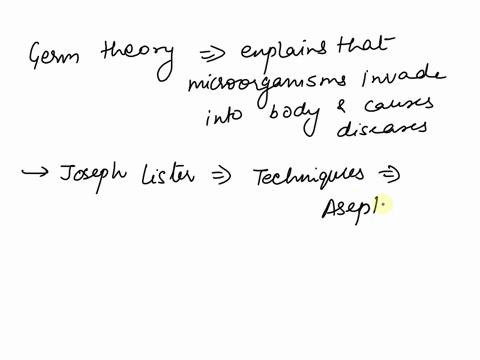 Germ theory ⇒ explains that
microorganisms invade
into body & causes
diseases
→ Joseph Lister ⇒ Techniques ⇒
Asept